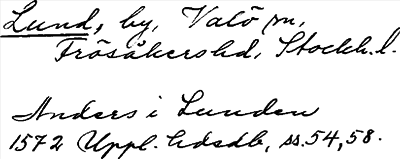 Lund, by, Valö sn,
Frösåkers hd, Stockh. l.
Anders i Lunden
1572 Uppl. hdsdb, ss. 54, 58.